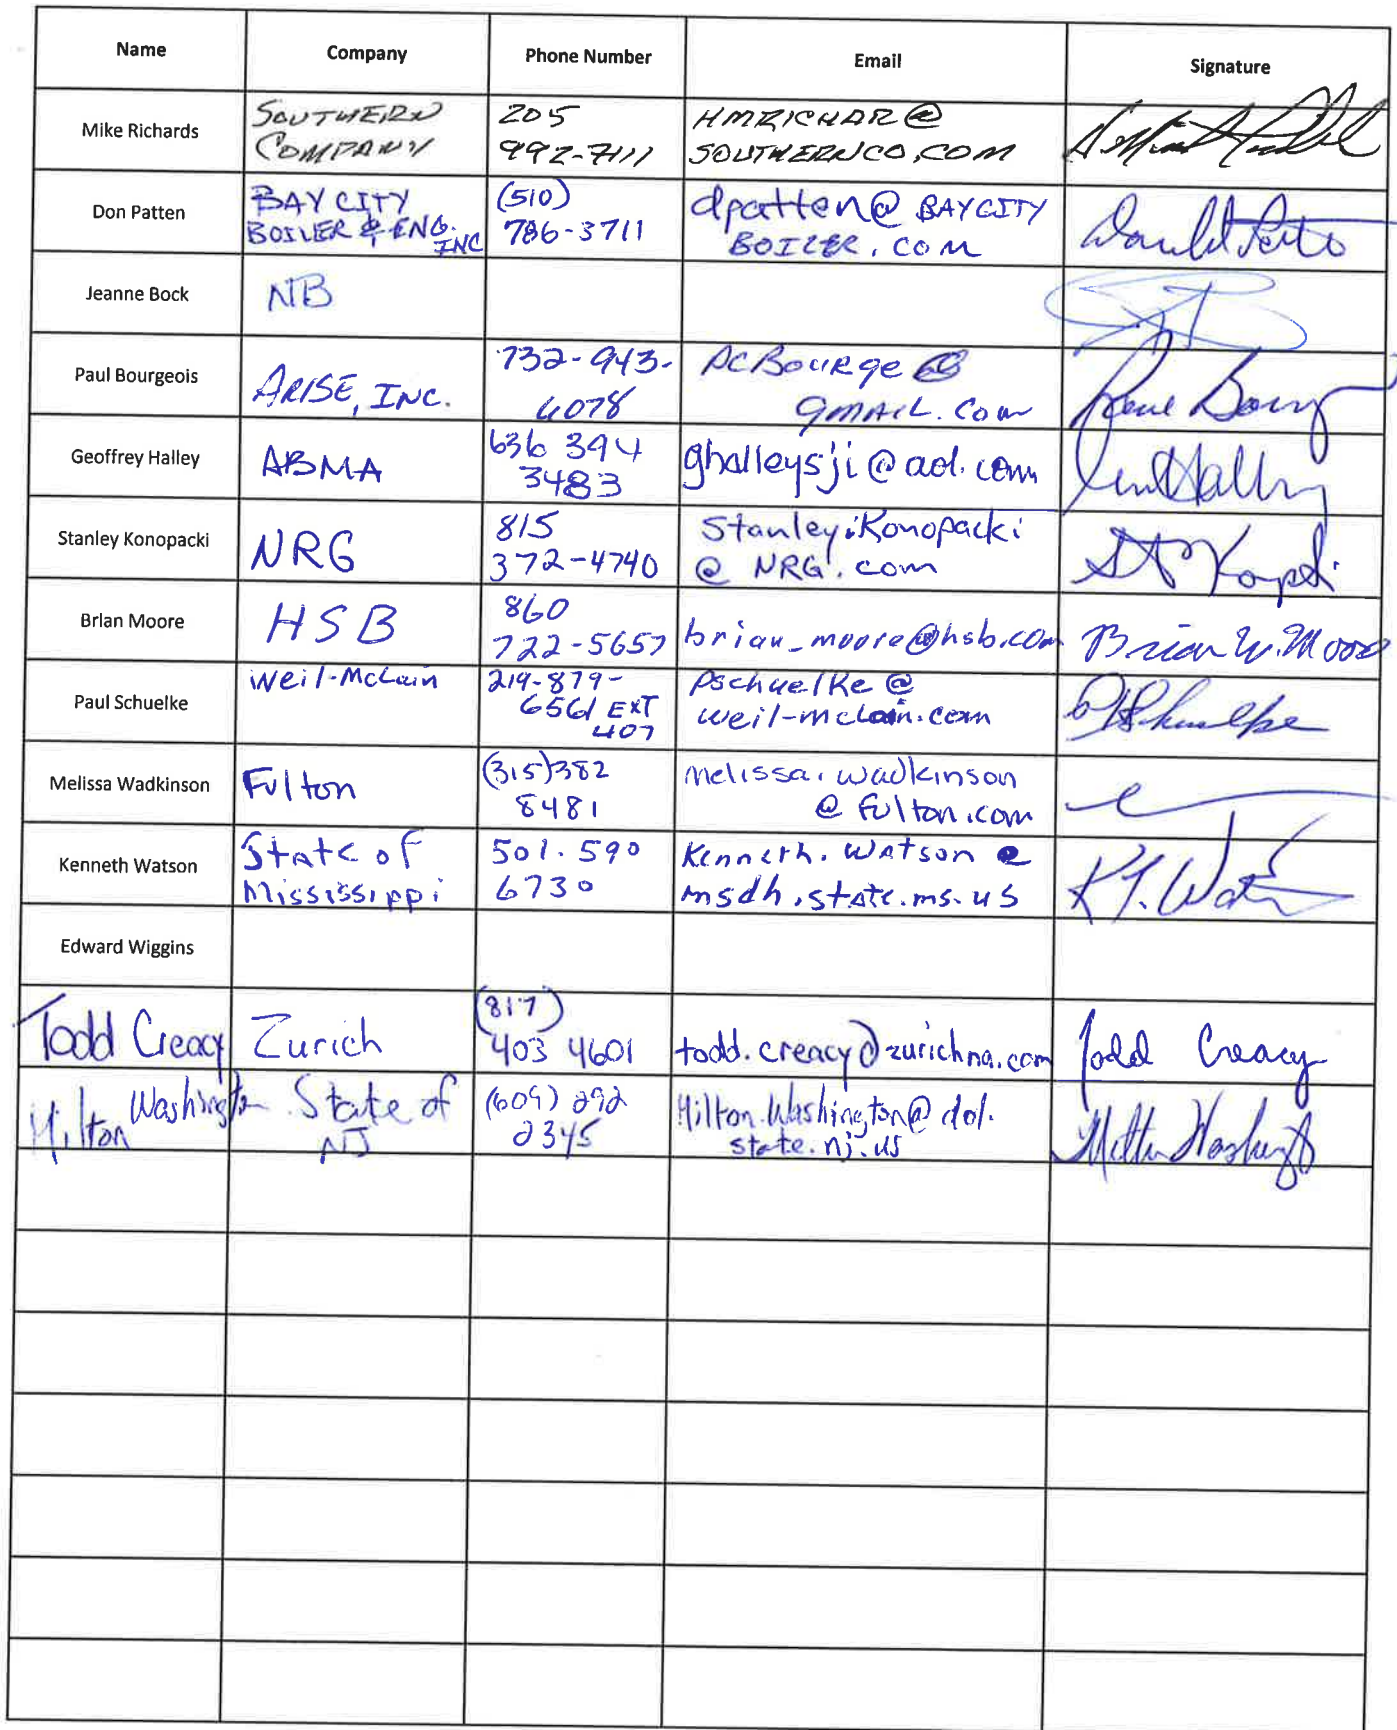 Name Company Phone Number Email Signature
Mike Richards
SOUTHERN
COMPANY
205
992-7111
HMRICHAR@
SOUTHERNCO.COM
Don Patten
BAY CITY
BOILER & ENG.
INC
(510)
786-3711
dpatten@BAYCITY
BOILER.COM
Jeanne Bock
NB
Paul Bourgeois
ARISE, INC.
732-943-
6078
PCBourge@
gmail.com
Geoffrey Halley
ABMA
636 394
3483
ghalleysji@aol.com
Stanley Konopacki
NRG
815
372-4740
Stanley.Konopacki
@ NRG.com
Brian Moore
HSB
860
722-5657
brian_moore@hsb.com
Brian W. Moore
Paul Schuelke
Weil-McLain
219-879-
6561 EXT
407
Pschuelke@
weil-mclain.com
Melissa Wadkinson
Fulton
(315)382
8481
melissa.wadkinson
@ Fulton.com
Kenneth Watson
State of
Mississippi
501.590
6730
Kenneth.Watson@
msdh.state.ms.us
Edward Wiggins
Todd Creacy
Zurich
(817)
403 4601
todd.creacy@zurichna.com
Todd Creacy
Milton Washington
State of
NJ
(609) 292
2345
Milton.Washington@dol.
state.nj.us
Milton Washington